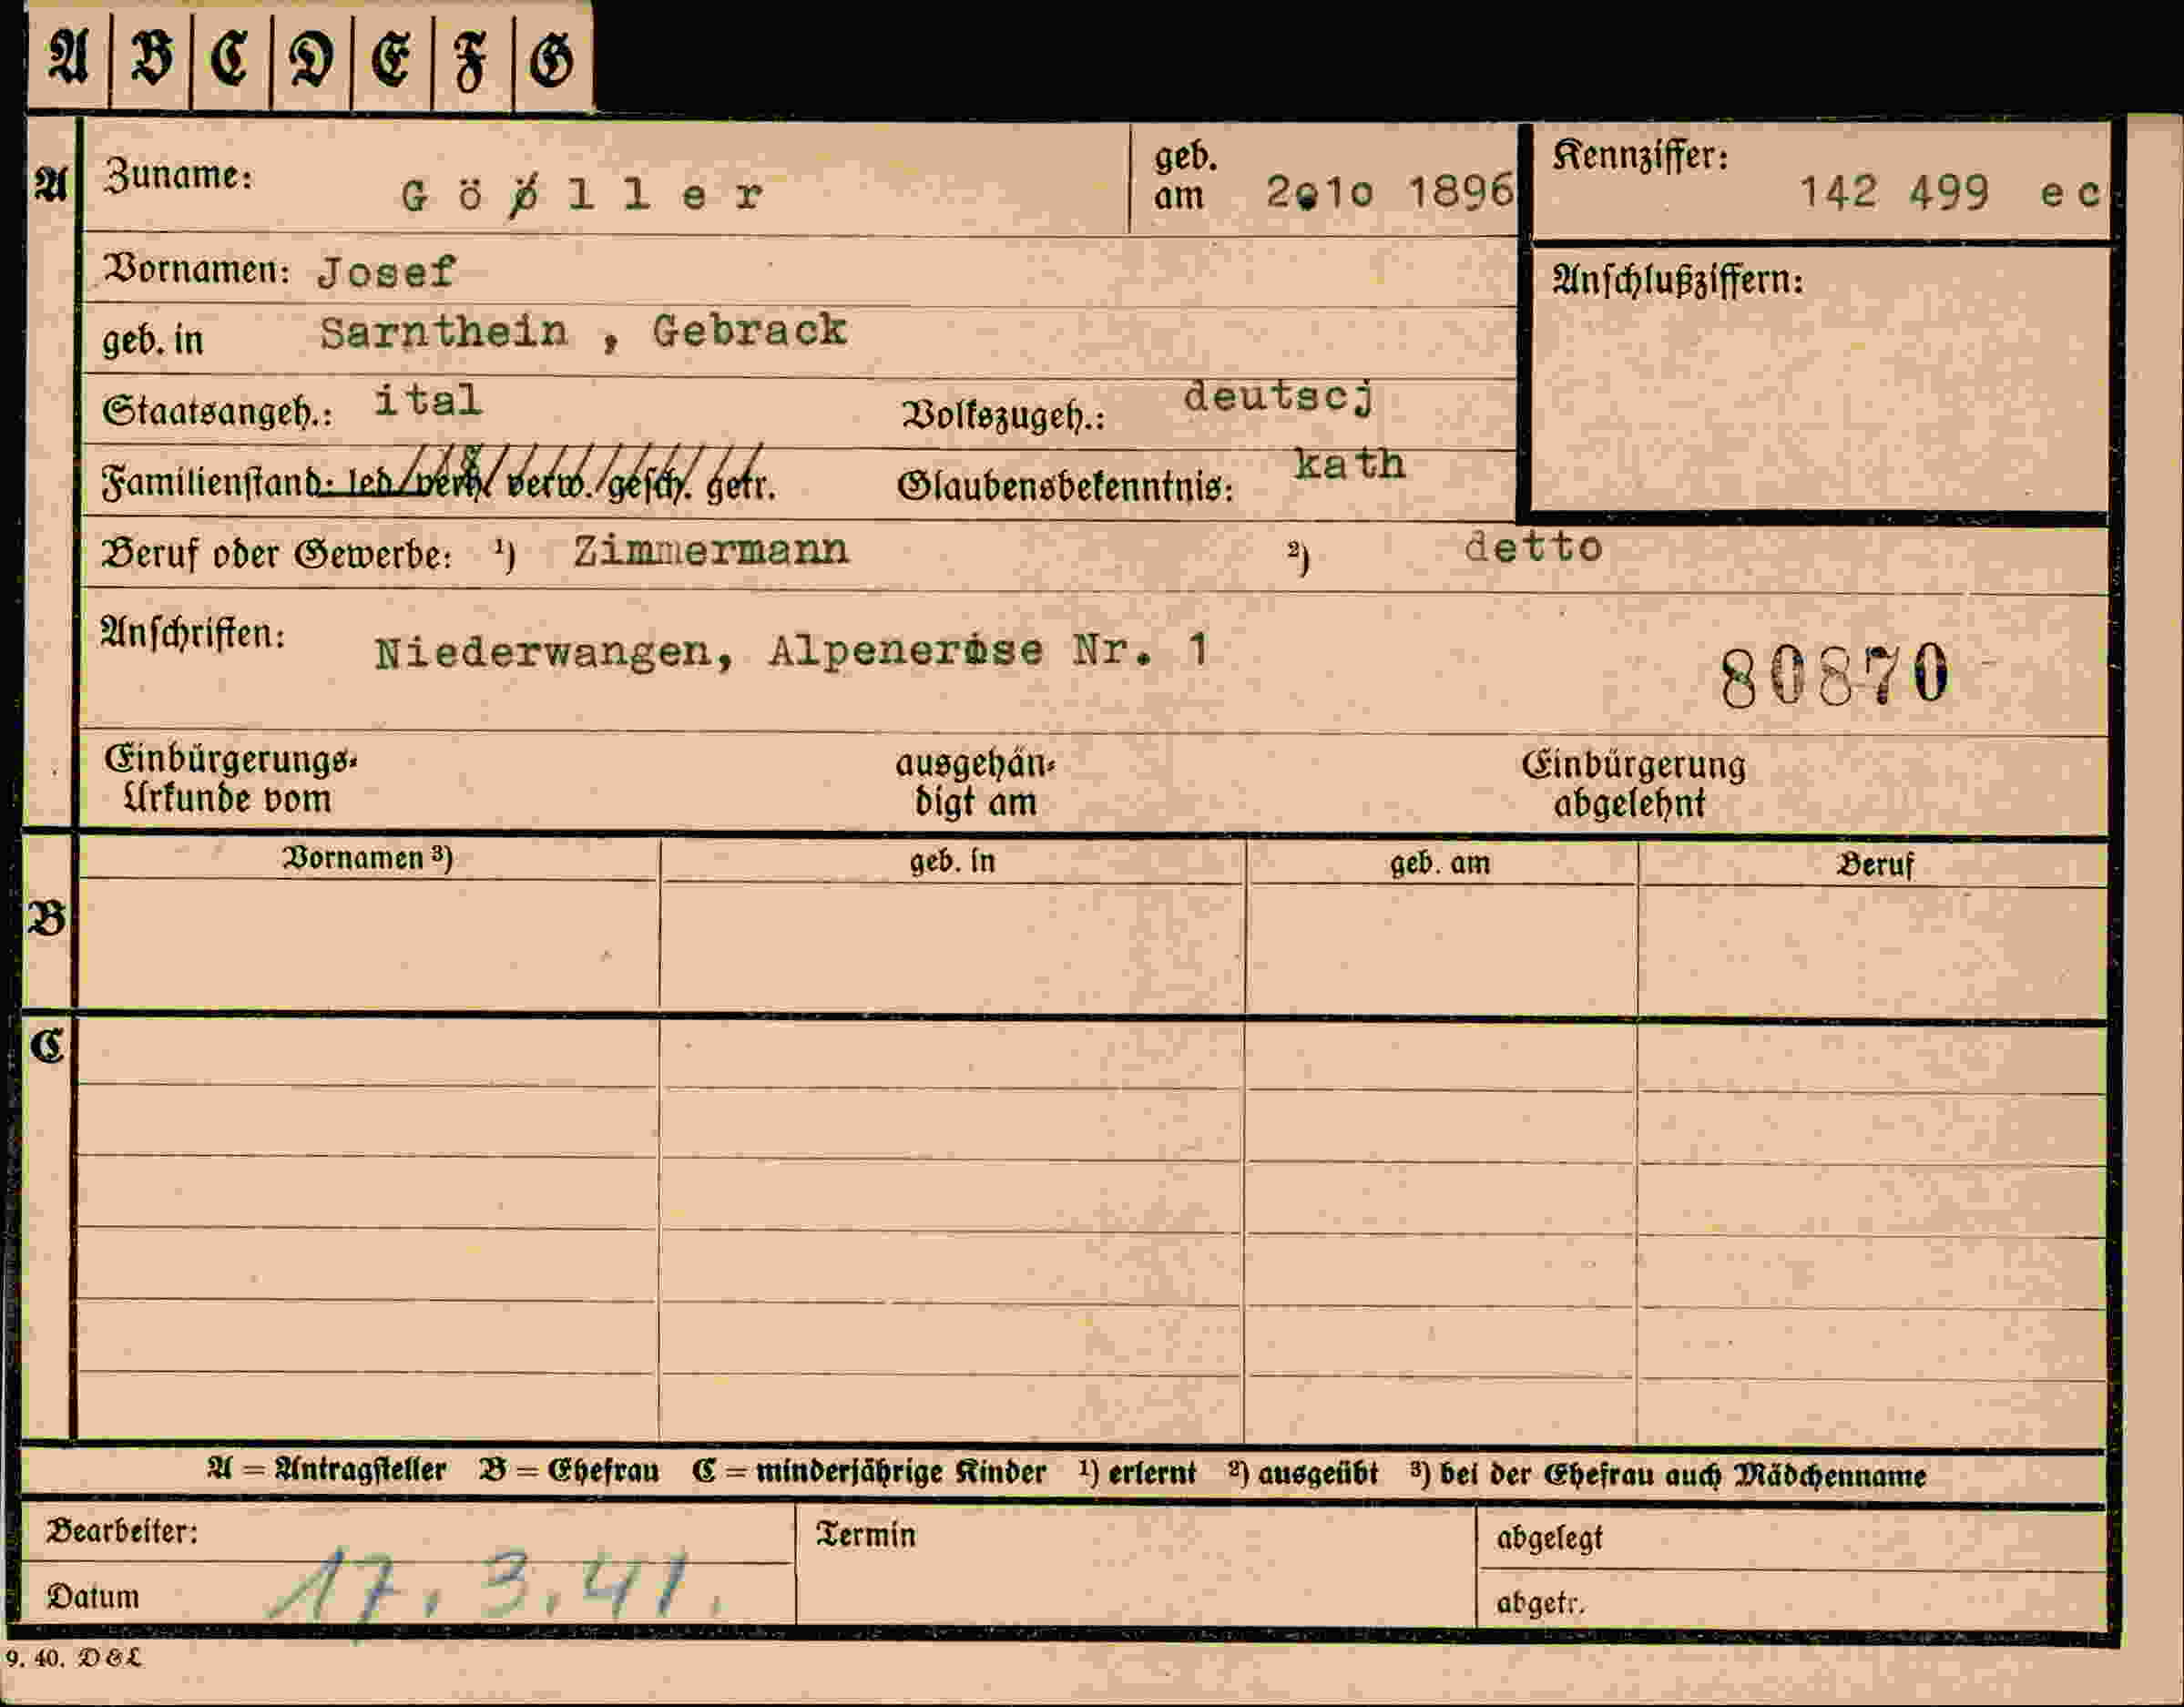 A B C D E F G
A Zuname: Göøller geb. am 2.10 1896 Kennziffer: 142 499 ec
Vornamen: Josef Anschlußziffern:
geb. in Sarnthein , Gebrack
Staatsangeh.: ital Volkszugeh.: deutscj
Familienstand: led/verh/ verw./gesch. getr. Glaubensbekenntnis: kath
Beruf oder Gewerbe: ¹) Zimmermann ²) detto
Anschriften: Niederwangen, Alpenerose Nr. 1 80870
Einbürgerungs- ausgehän- Einbürgerung
Urkunde vom digt am abgelehnt
Vornamen ³) geb. in geb. am Beruf
B
C
A = Antragsteller B = Ehefrau C = minderjährige Kinder ¹) erlernt ²) ausgeübt ³) bei der Ehefrau auch Mädchenname
Bearbeiter: Termin abgelegt
Datum 17. 3. 41. abgetr.
9. 40. D & L